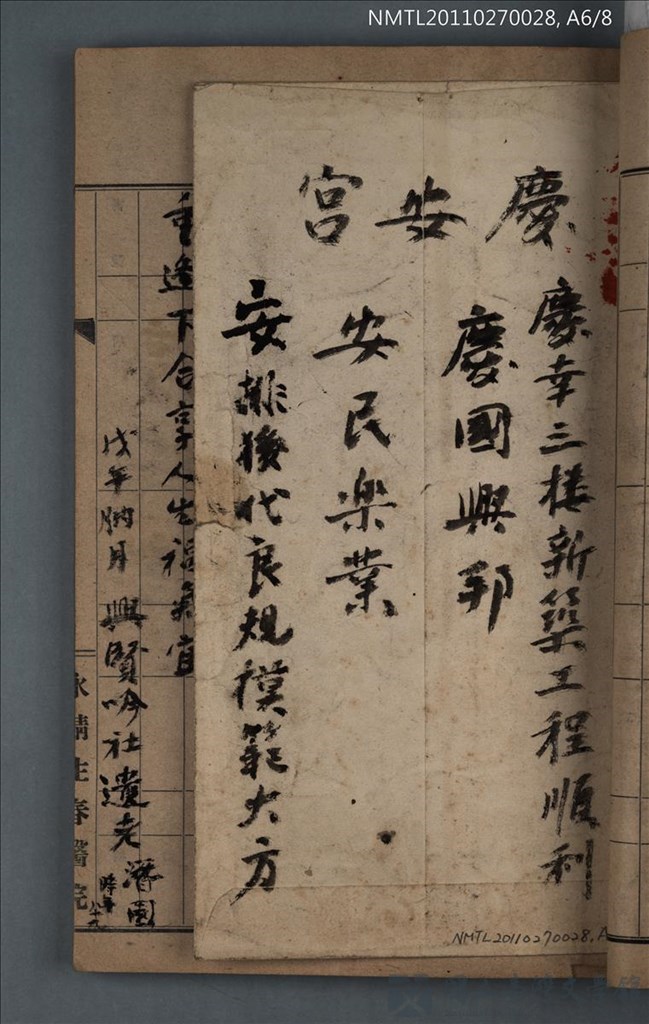 NMTL20110270028, A6/8
慶安宮
慶幸三楼新築工程順利
慶國興邦
安民楽業
安排後代良規模範大方
重逢下合享人生福氣宜
戊年 月 興賢吟社遺老 濳園
時年八十九
春醫院
NMTL20110270028, A